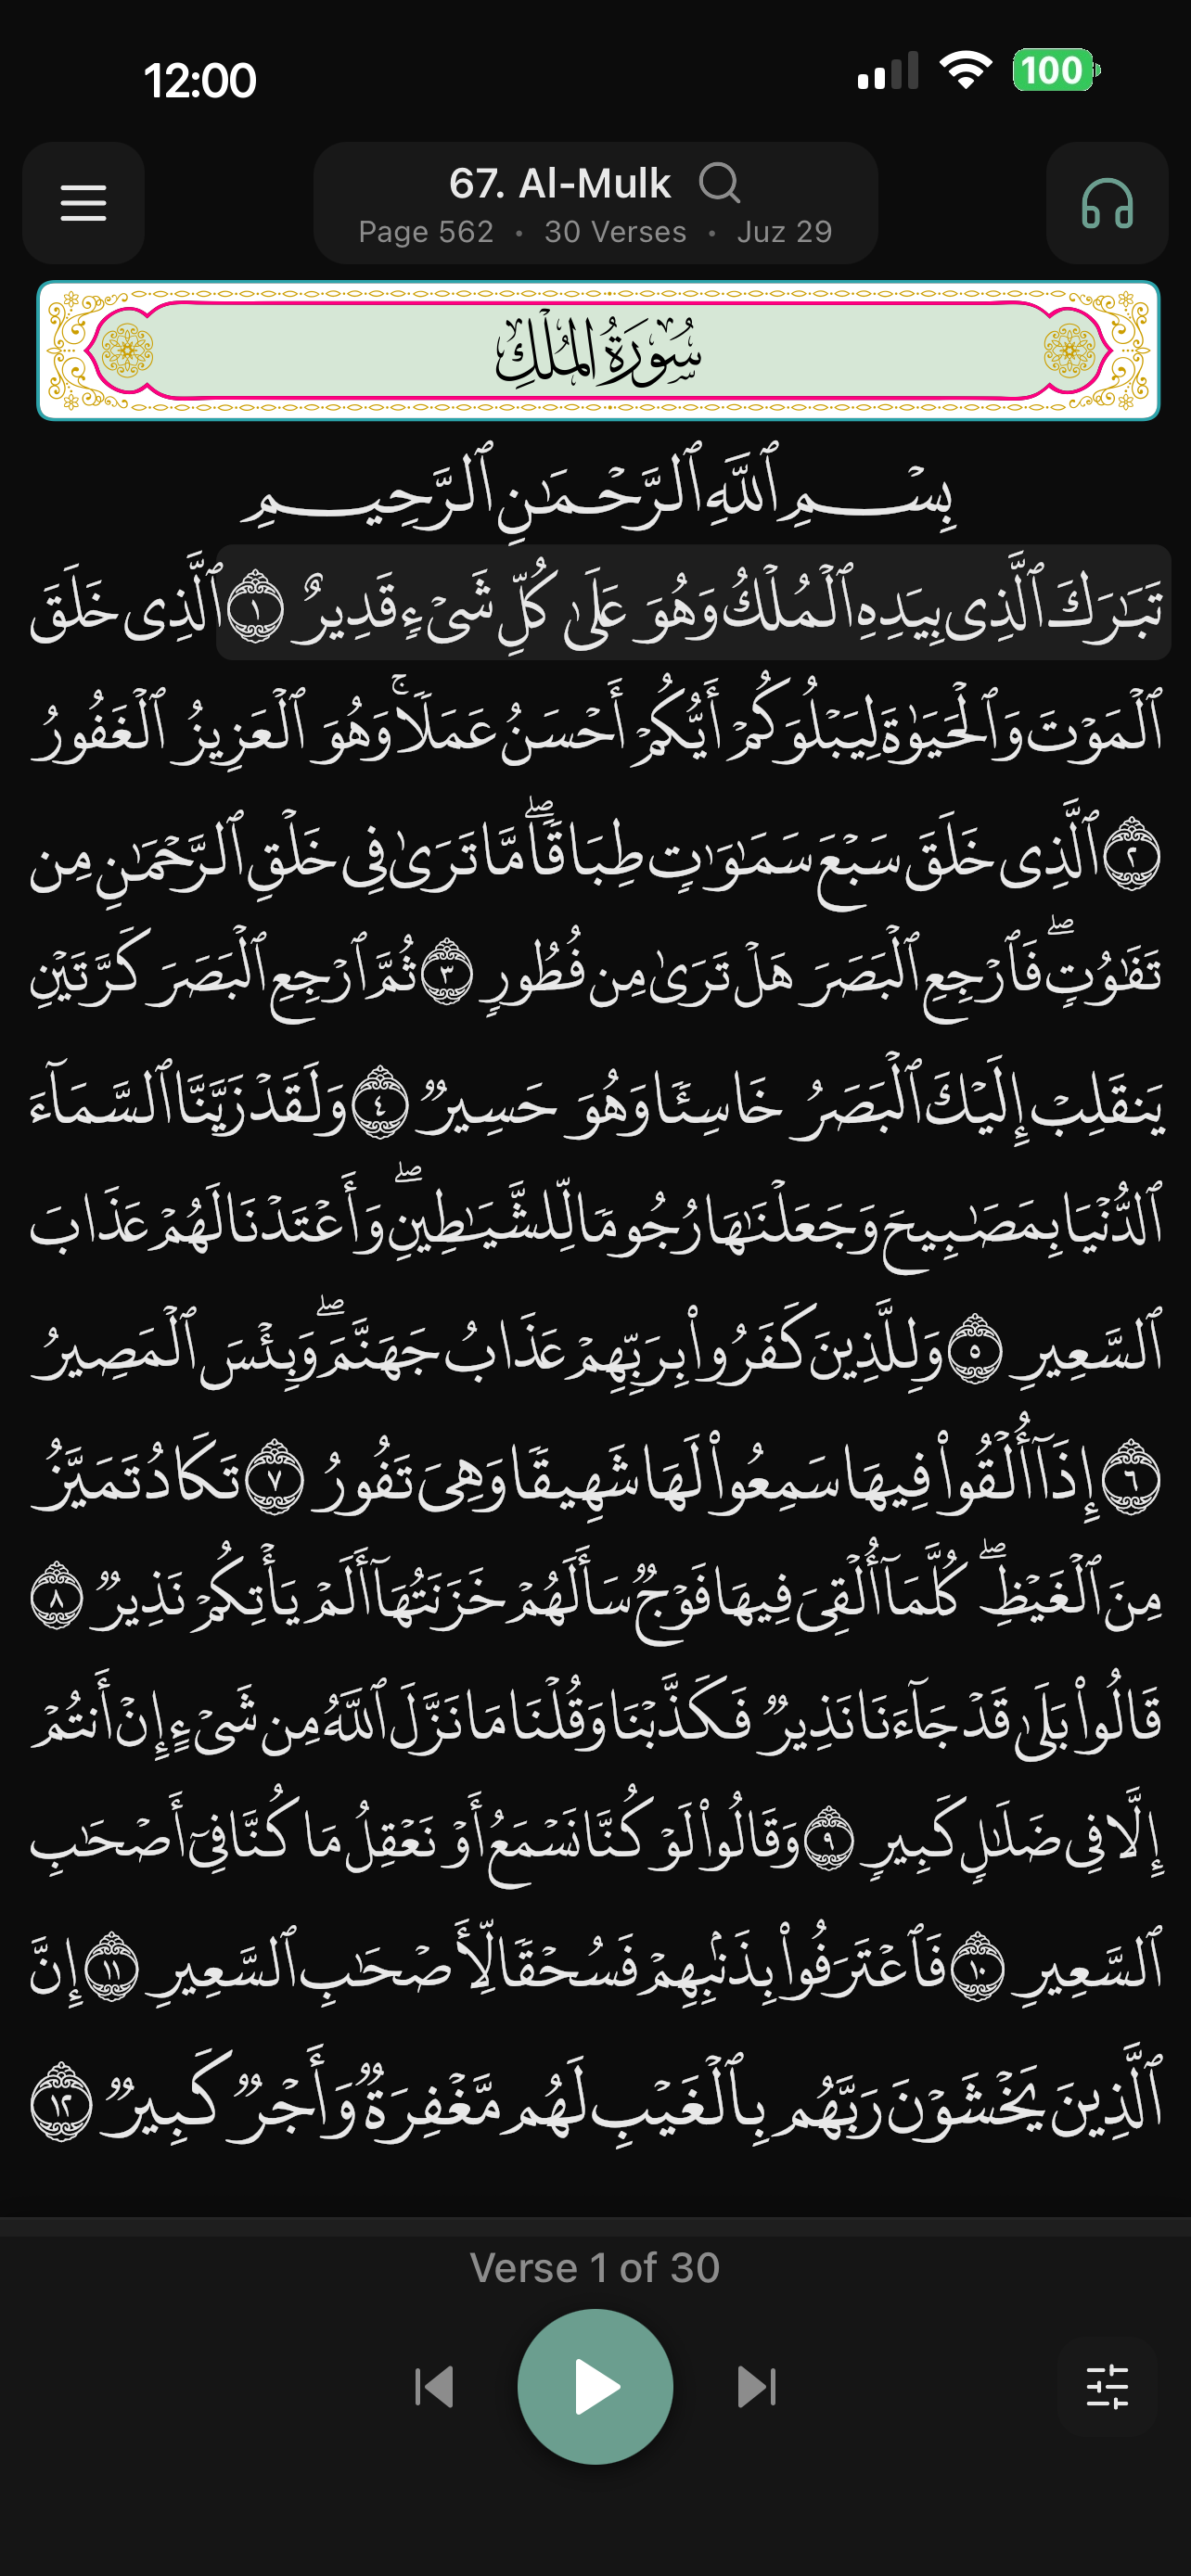 12:00
100
67. Al-Mulk
Page 562 • 30 Verses • Juz 29
سُورَةُ المُلۡكِ
بِسۡمِ ٱللَّهِ ٱلرَّحۡمَٰنِ ٱلرَّحِيمِ
تَبَٰرَكَ ٱلَّذِى بِيَدِهِ ٱلۡمُلۡكُ وَهُوَ عَلَىٰ كُلِّ شَىۡءٖ قَدِيرٌ ١ ٱلَّذِى خَلَقَ
ٱلۡمَوۡتَ وَٱلۡحَيَوٰةَ لِيَبۡلُوَكُمۡ أَيُّكُمۡ أَحۡسَنُ عَمَلٗاۚ وَهُوَ ٱلۡعَزِيزُ ٱلۡغَفُورُ
٢ ٱلَّذِى خَلَقَ سَبۡعَ سَمَٰوَٰتٖ طِبَاقٗاۖ مَّا تَرَىٰ فِى خَلۡقِ ٱلرَّحۡمَٰنِ مِن
تَفَٰوُتٖۖ فَٱرۡجِعِ ٱلۡبَصَرَ هَلۡ تَرَىٰ مِن فُطُورٖ ٣ ثُمَّ ٱرۡجِعِ ٱلۡبَصَرَ كَرَّتَيۡنِ
يَنقَلِبۡ إِلَيۡكَ ٱلۡبَصَرُ خَاسِئٗا وَهُوَ حَسِيرٞ ٤ وَلَقَدۡ زَيَّنَّا ٱلسَّمَآءَ
ٱلدُّنۡيَا بِمَصَٰبِيحَ وَجَعَلۡنَٰهَا رُجُومٗا لِّلشَّيَٰطِينِۖ وَأَعۡتَدۡنَا لَهُمۡ عَذَابَ
ٱلسَّعِيرِ ٥ وَلِلَّذِينَ كَفَرُواْ بِرَبِّهِمۡ عَذَابُ جَهَنَّمَۖ وَبِئۡسَ ٱلۡمَصِيرُ
٦ إِذَآ أُلۡقُواْ فِيهَا سَمِعُواْ لَهَا شَهِيقٗا وَهِىَ تَفُورُ ٧ تَكَادُ تَمَيَّزُ
مِنَ ٱلۡغَيۡظِۖ كُلَّمَآ أُلۡقِىَ فِيهَا فَوۡجٞ سَأَلَهُمۡ خَزَنَتُهَآ أَلَمۡ يَأۡتِكُمۡ نَذِيرٞ ٨
قَالُواْ بَلَىٰ قَدۡ جَآءَنَا نَذِيرٞ فَكَذَّبۡنَا وَقُلۡنَا مَا نَزَّلَ ٱللَّهُ مِن شَىۡءٍ إِنۡ أَنتُمۡ
إِلَّا فِى ضَلَٰلٖ كَبِيرٖ ٩ وَقَالُواْ لَوۡ كُنَّا نَسۡمَعُ أَوۡ نَعۡقِلُ مَا كُنَّا فِىٓ أَصۡحَٰبِ
ٱلسَّعِيرِ ١٠ فَٱعۡتَرَفُواْ بِذَنۢبِهِمۡ فَسُحۡقٗا لِّأَصۡحَٰبِ ٱلسَّعِيرِ ١١ إِنَّ
ٱلَّذِينَ يَخۡشَوۡنَ رَبَّهُم بِٱلۡغَيۡبِ لَهُم مَّغۡفِرَةٞ وَأَجۡرٞ كَبِيرٞ ١٢
Verse 1 of 30